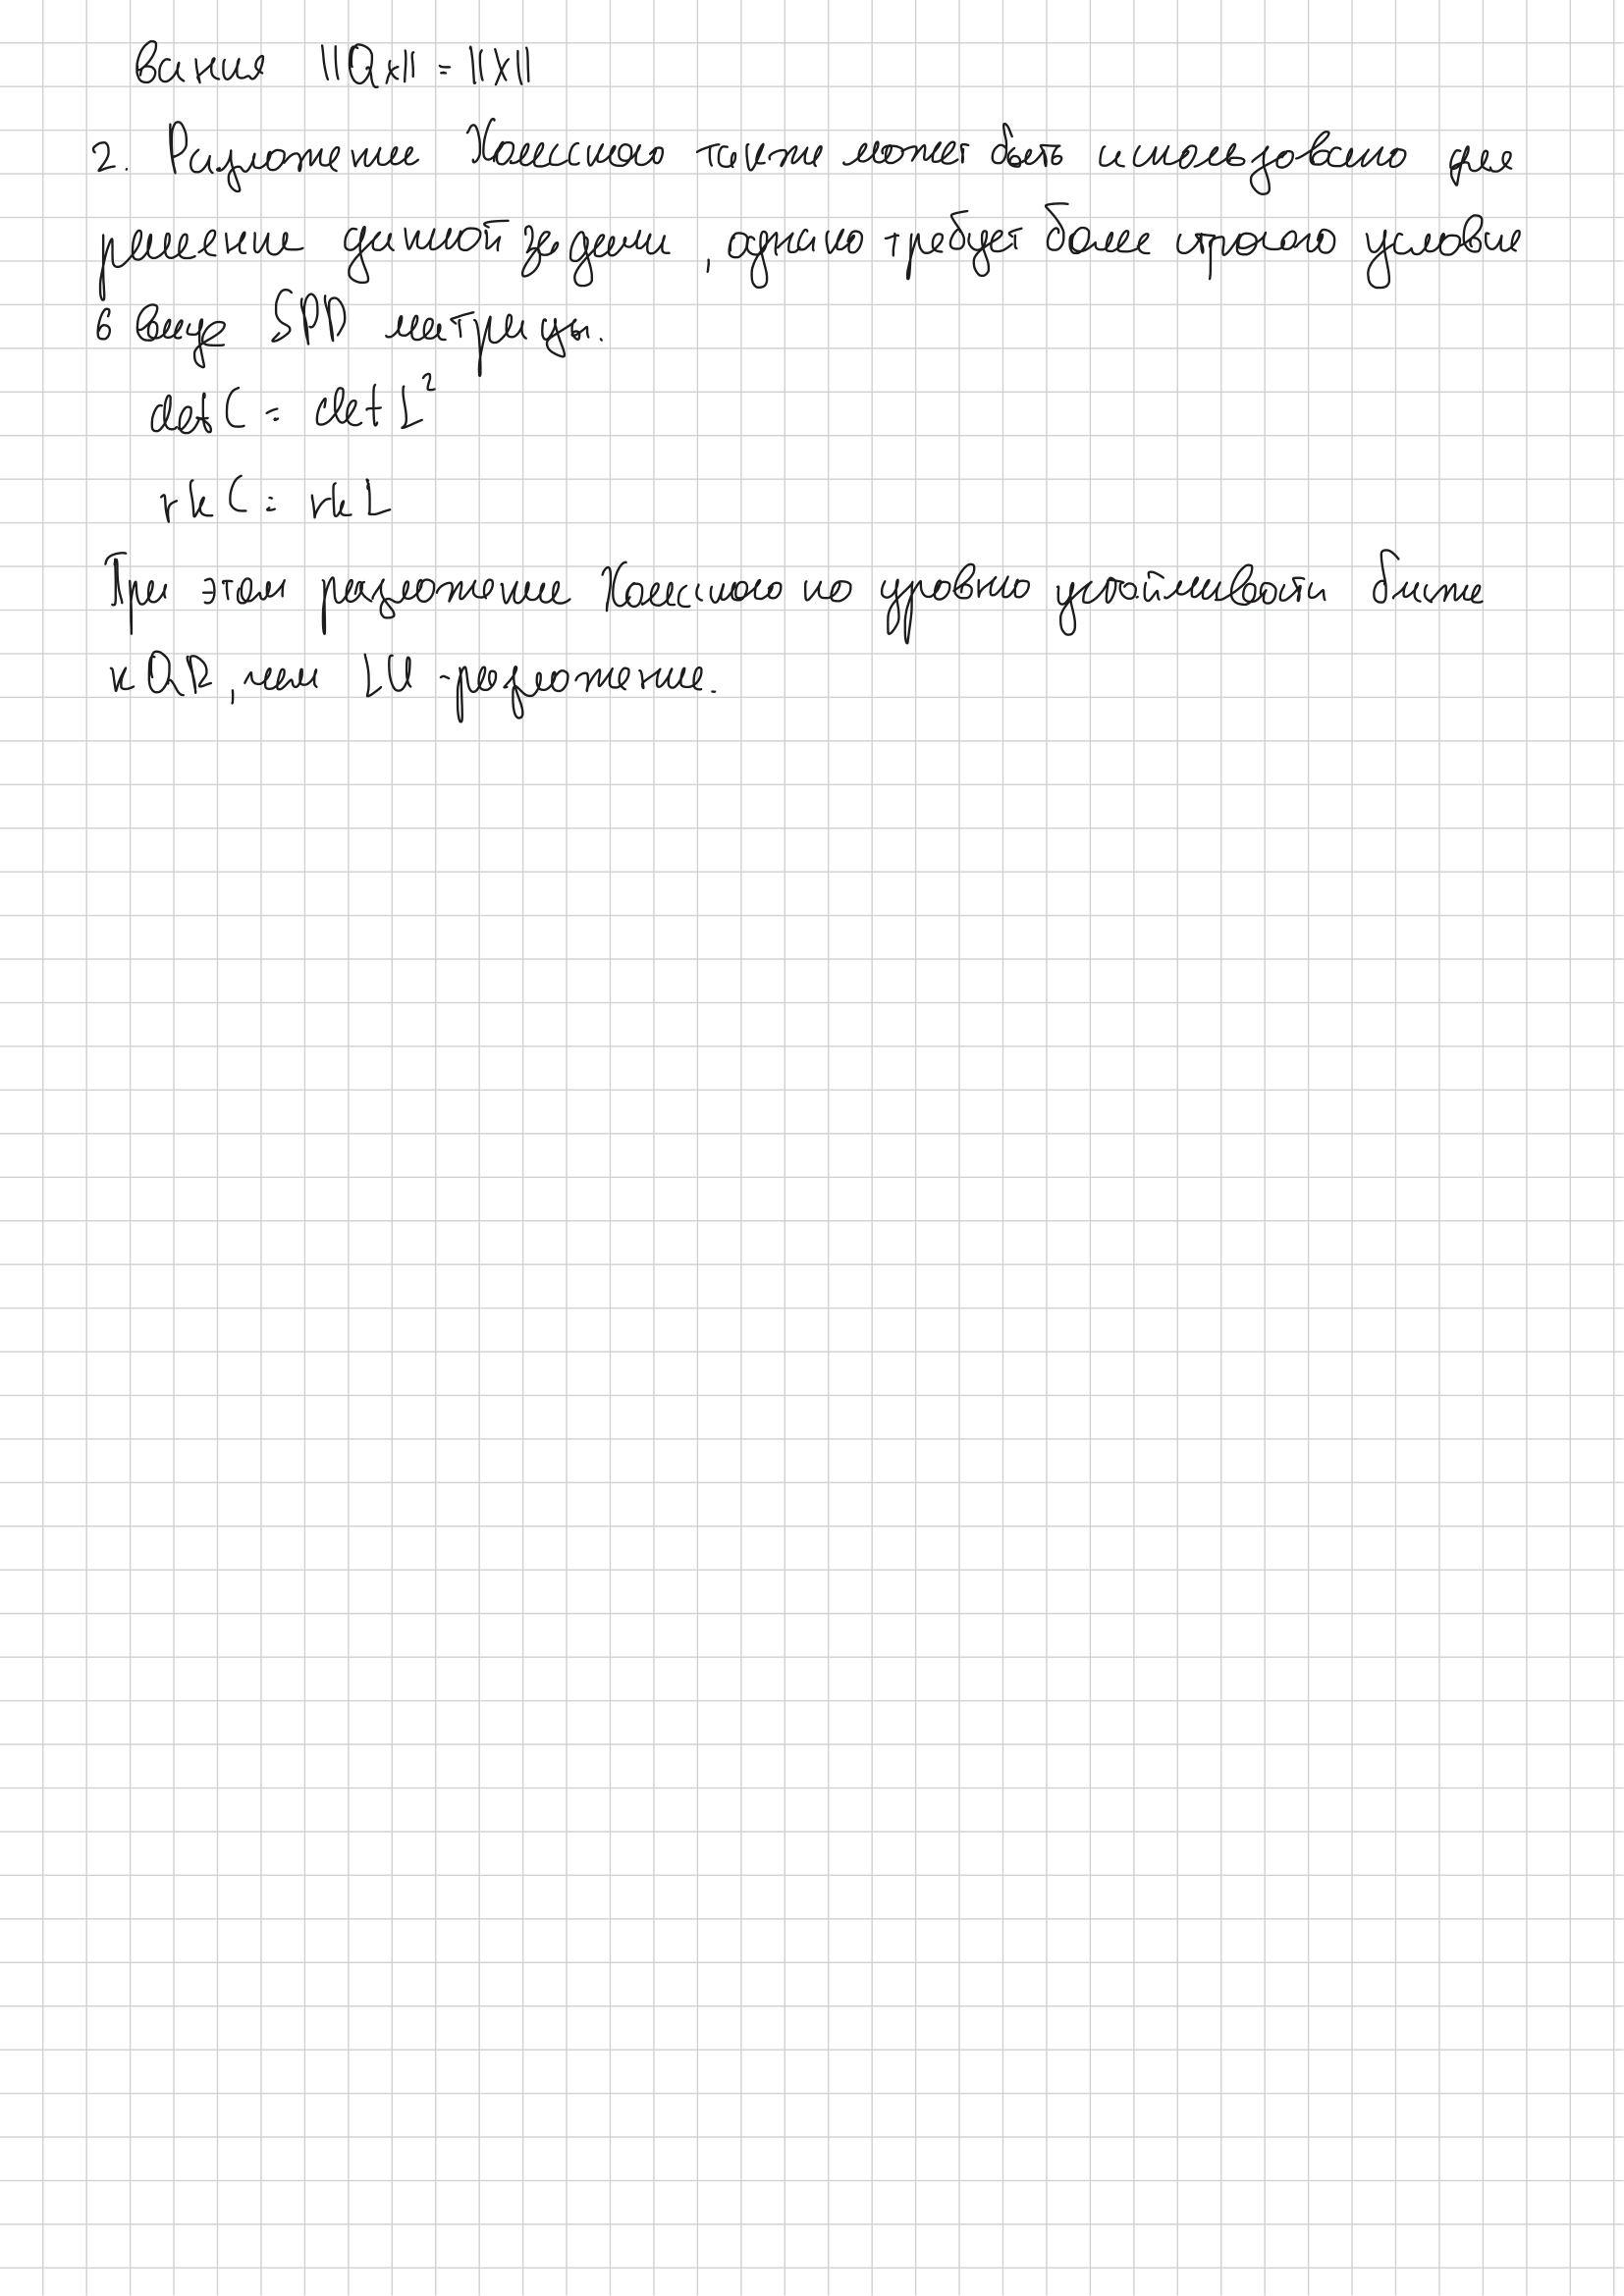 вания ||Qx|| = ||x||
2. Разложение Холесского также может быть использовано для
решение данной задачи, однако требует более строгого условие
в виде SPD матрицы.
det C = det L²
rk C = rk L
При этом разложение Холесского по уровню устойчивости ближе
к QR, чем LU-разложение.